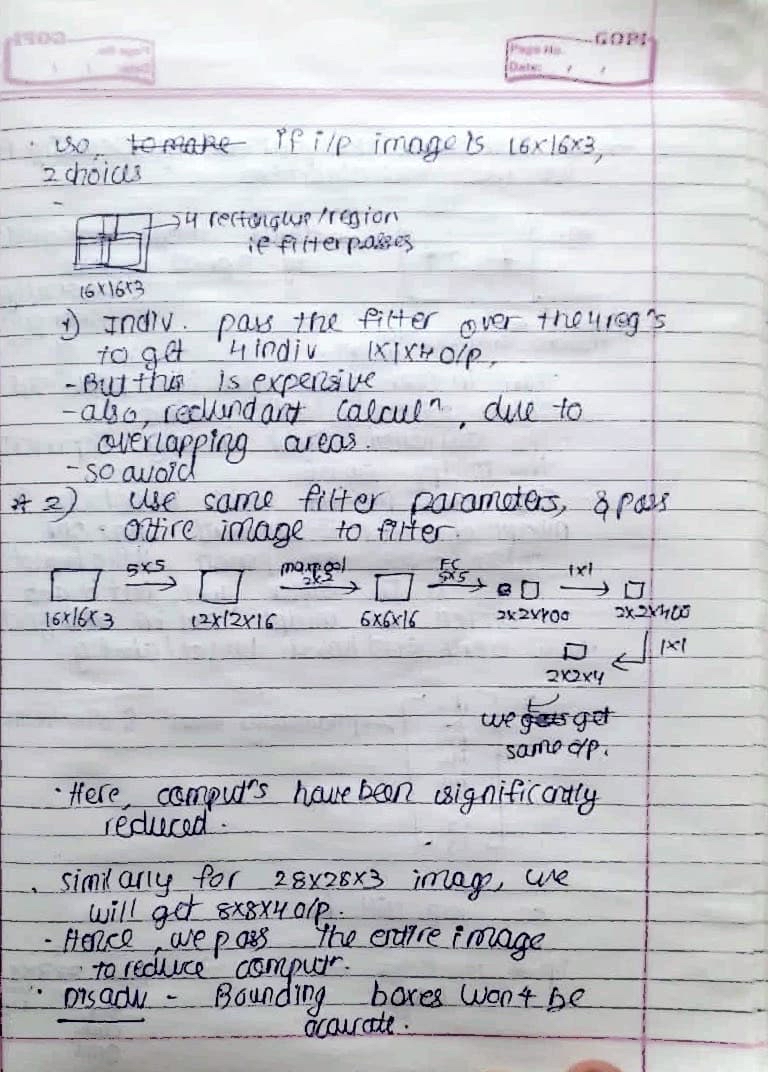 GOPI
Page No.
Date: / /
· so, to make if i/p image is 16x16x3,
2 choices
- → 4 rectangue/region
ie filter passes
16x16x3
1) Indiv. pass the filter over the 4 reg^ns
to get 4 indiv 1x1x4 o/p,
- But this is expensive
- also, redundant calcul^n, due to
overlapping areas.
- so avoid
* 2) use same filter parameters, & pass
entire image to filter.
5x5 → maxpool 2x2 → FC 5x5 → 1x1 →
16x16x3 12x12x16 6x6x16 2x2x400 2x2x400
1x1
2x2x4
we gets get
same o/p.
· Here, comput^ns have been significantly
reduced.
· similarly for 28x28x3 image, we
will get 8x8x4 o/p.
- Hence, we pass the entire image
to reduce comput^n.
· Disadv - Bounding boxes won't be
accurate.